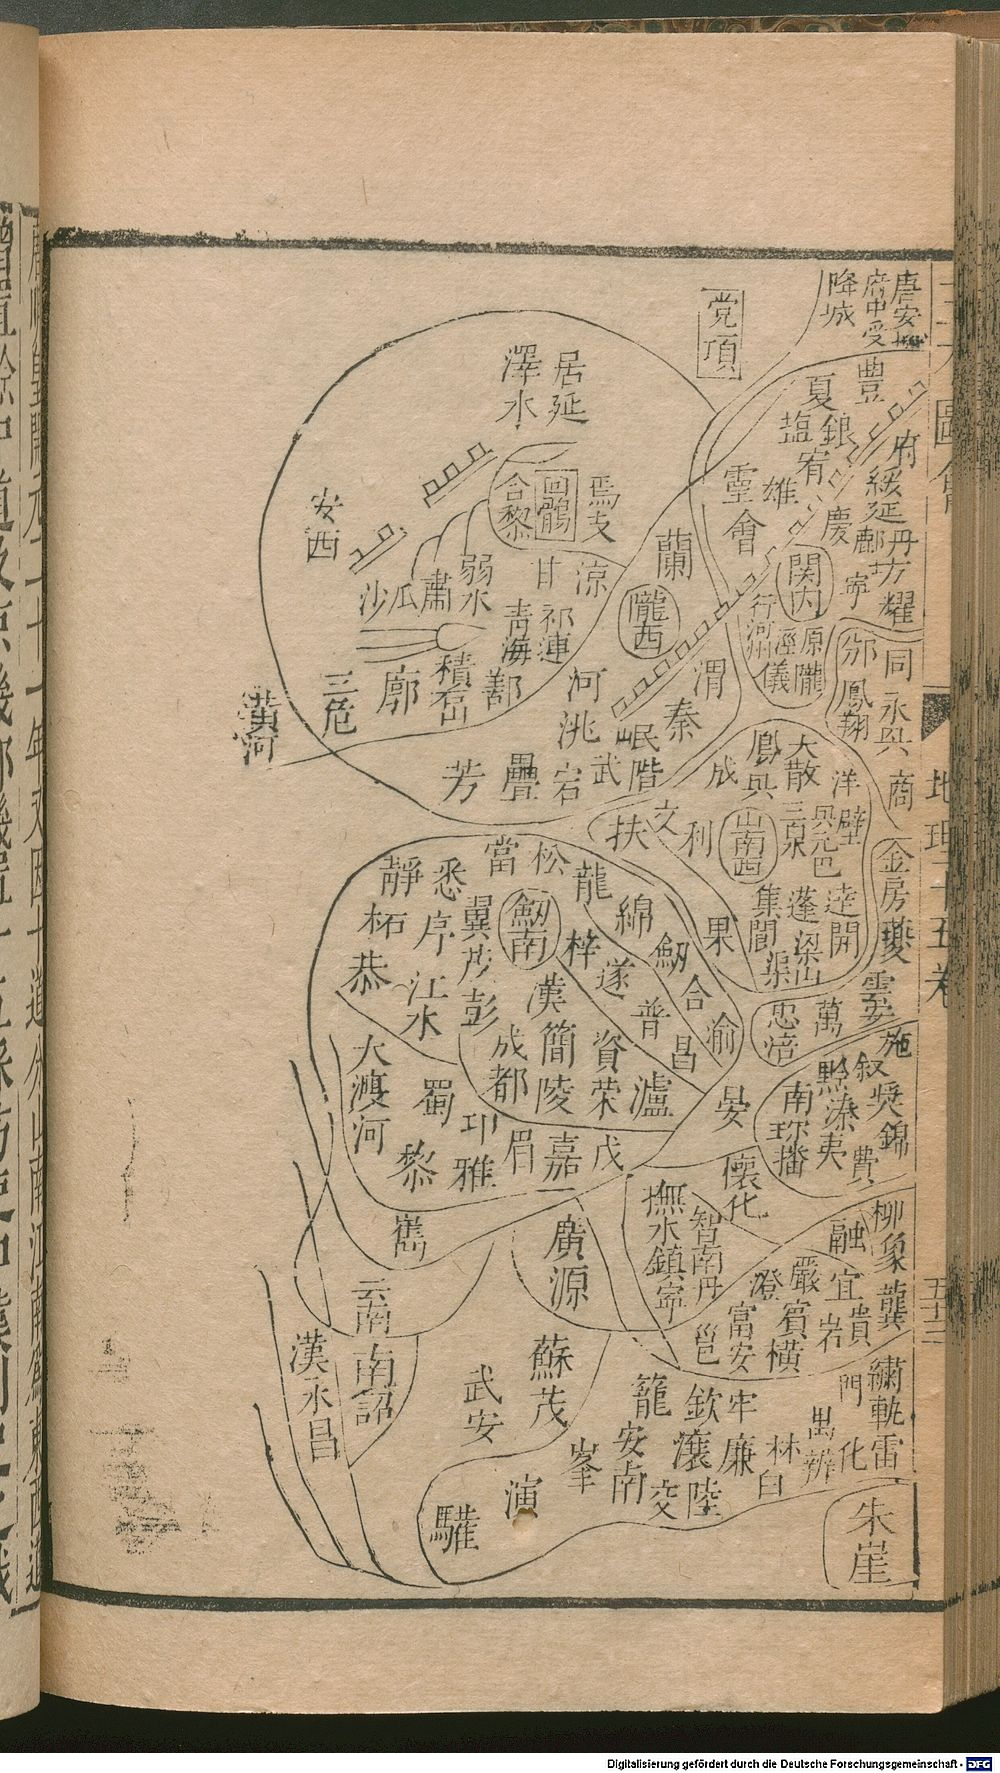 唐安北
府中受
降城
党項
豊
夏
銀
塩
宥
府
綏
延
丹
鄜
坊
慶
寧
耀
雄
靈
會
関内
行河州
涇
原
儀
隴
同
邠
鳳翔
永興
商
居延
澤水
合黎
回鶻
焉支
安西
沙
瓜
肅
弱水
甘
涼
蘭
隴西
祁連
青海
積石山
鄯
廓
三危
黄河
河
洮
渭
秦
岷
階
武
宕
疊
芳
成
鳳
興
大散
洋
壁
興元
巴
三泉
山南西
利
文
扶
集
蓬
逹
開
閬
渠
梁山
果
金
房
夔
雲安
萬
忠
涪
施
松
當
悉
靜
柘
恭
翼
茂
彭
江水
劒南
龍
綿
劒
梓
遂
合
普
昌
渝
漢
簡
成都
陵
資
荣
瀘
大渡河
蜀
邛
黎
雅
眉
嘉
戎
晏
叙
黔
溱
夷
奨
錦
費
南
播
懐化
撫水
鎮寧
智
南丹
嶲
云南
南詔
漢永昌
廣源
蘇茂
武安
柳
象
龔
融
宜
貴
嚴
澄
賓
岩
富安
橫
邕
繡
雷
門
化
籠
欽
牢
廉
安南
交
陸
林
白
峯
演
驩
朱崖
地理十五卷
五十二
Digitalisierung gefördert durch die Deutsche Forschungsgemeinschaft - DFG